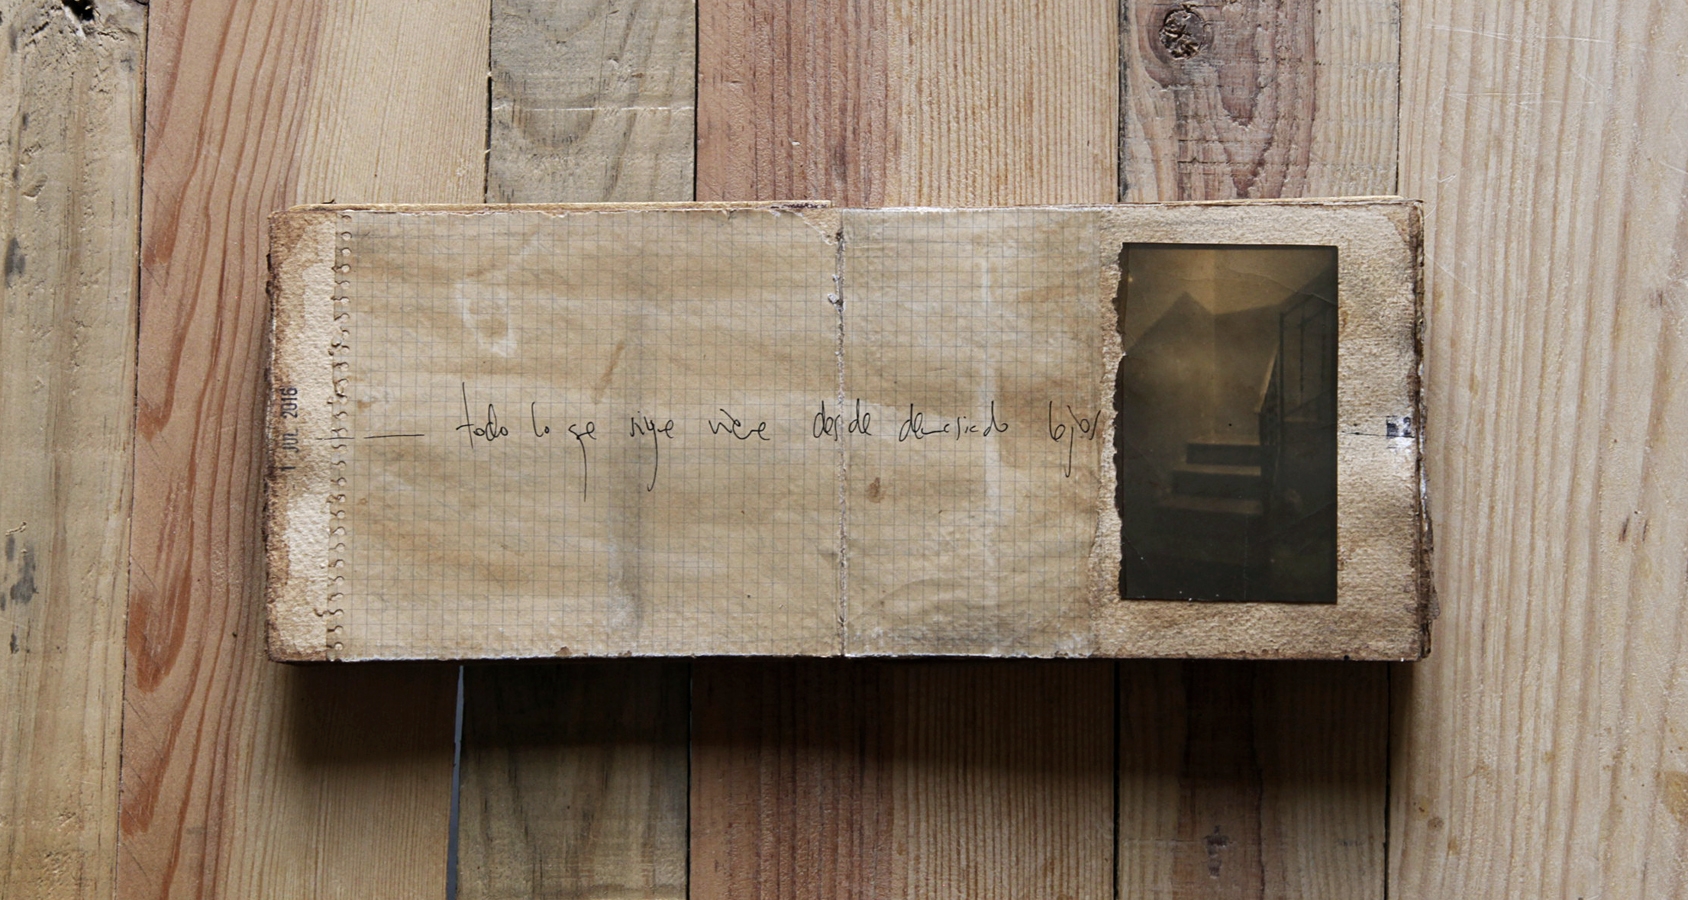 1 JUL 2016
— todo lo que sigue viene desde demasiado lejos